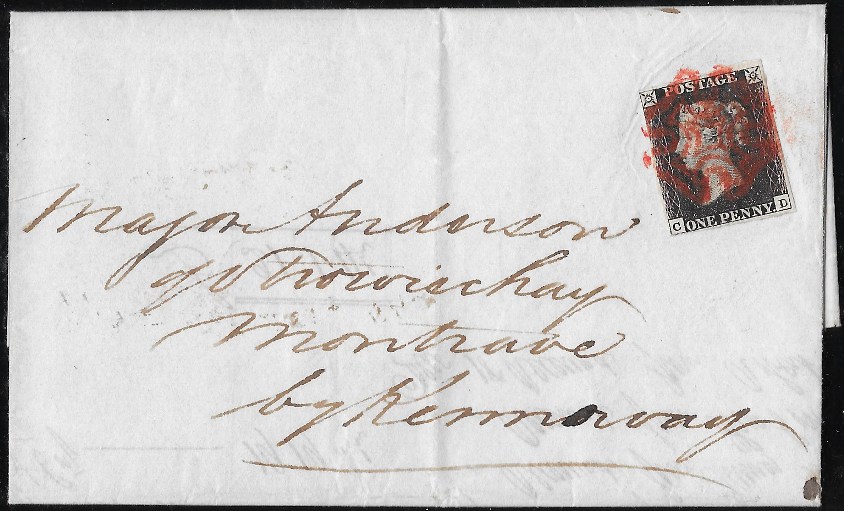 POSTAGE
C ONE PENNY D
Major Anderson
of
Montrave
by Kennoway